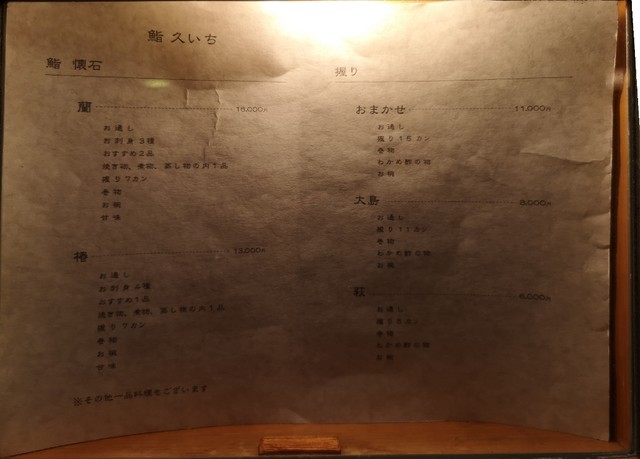 鮨 久いち
鮨 懐石
蘭 16,000円
お通し
お刺身3種
おすすめ2品
焼き物、煮物、蒸し物の内1品
握り7カン
巻物
お椀
甘味
椿 13,000円
お通し
お刺身4種
おすすめ1品
焼き物、煮物、蒸し物の内1品
握り7カン
巻物
お椀
甘味
※その他一品料理もございます
握り
おまかせ 11,000円
お通し
握り15カン
巻物
わかめ酢の物
お椀
大島 8,000円
お通し
握り11カン
巻物
わかめ酢の物
お椀
萩 6,000円
お通し
握り8カン
巻物
わかめ酢の物
お椀